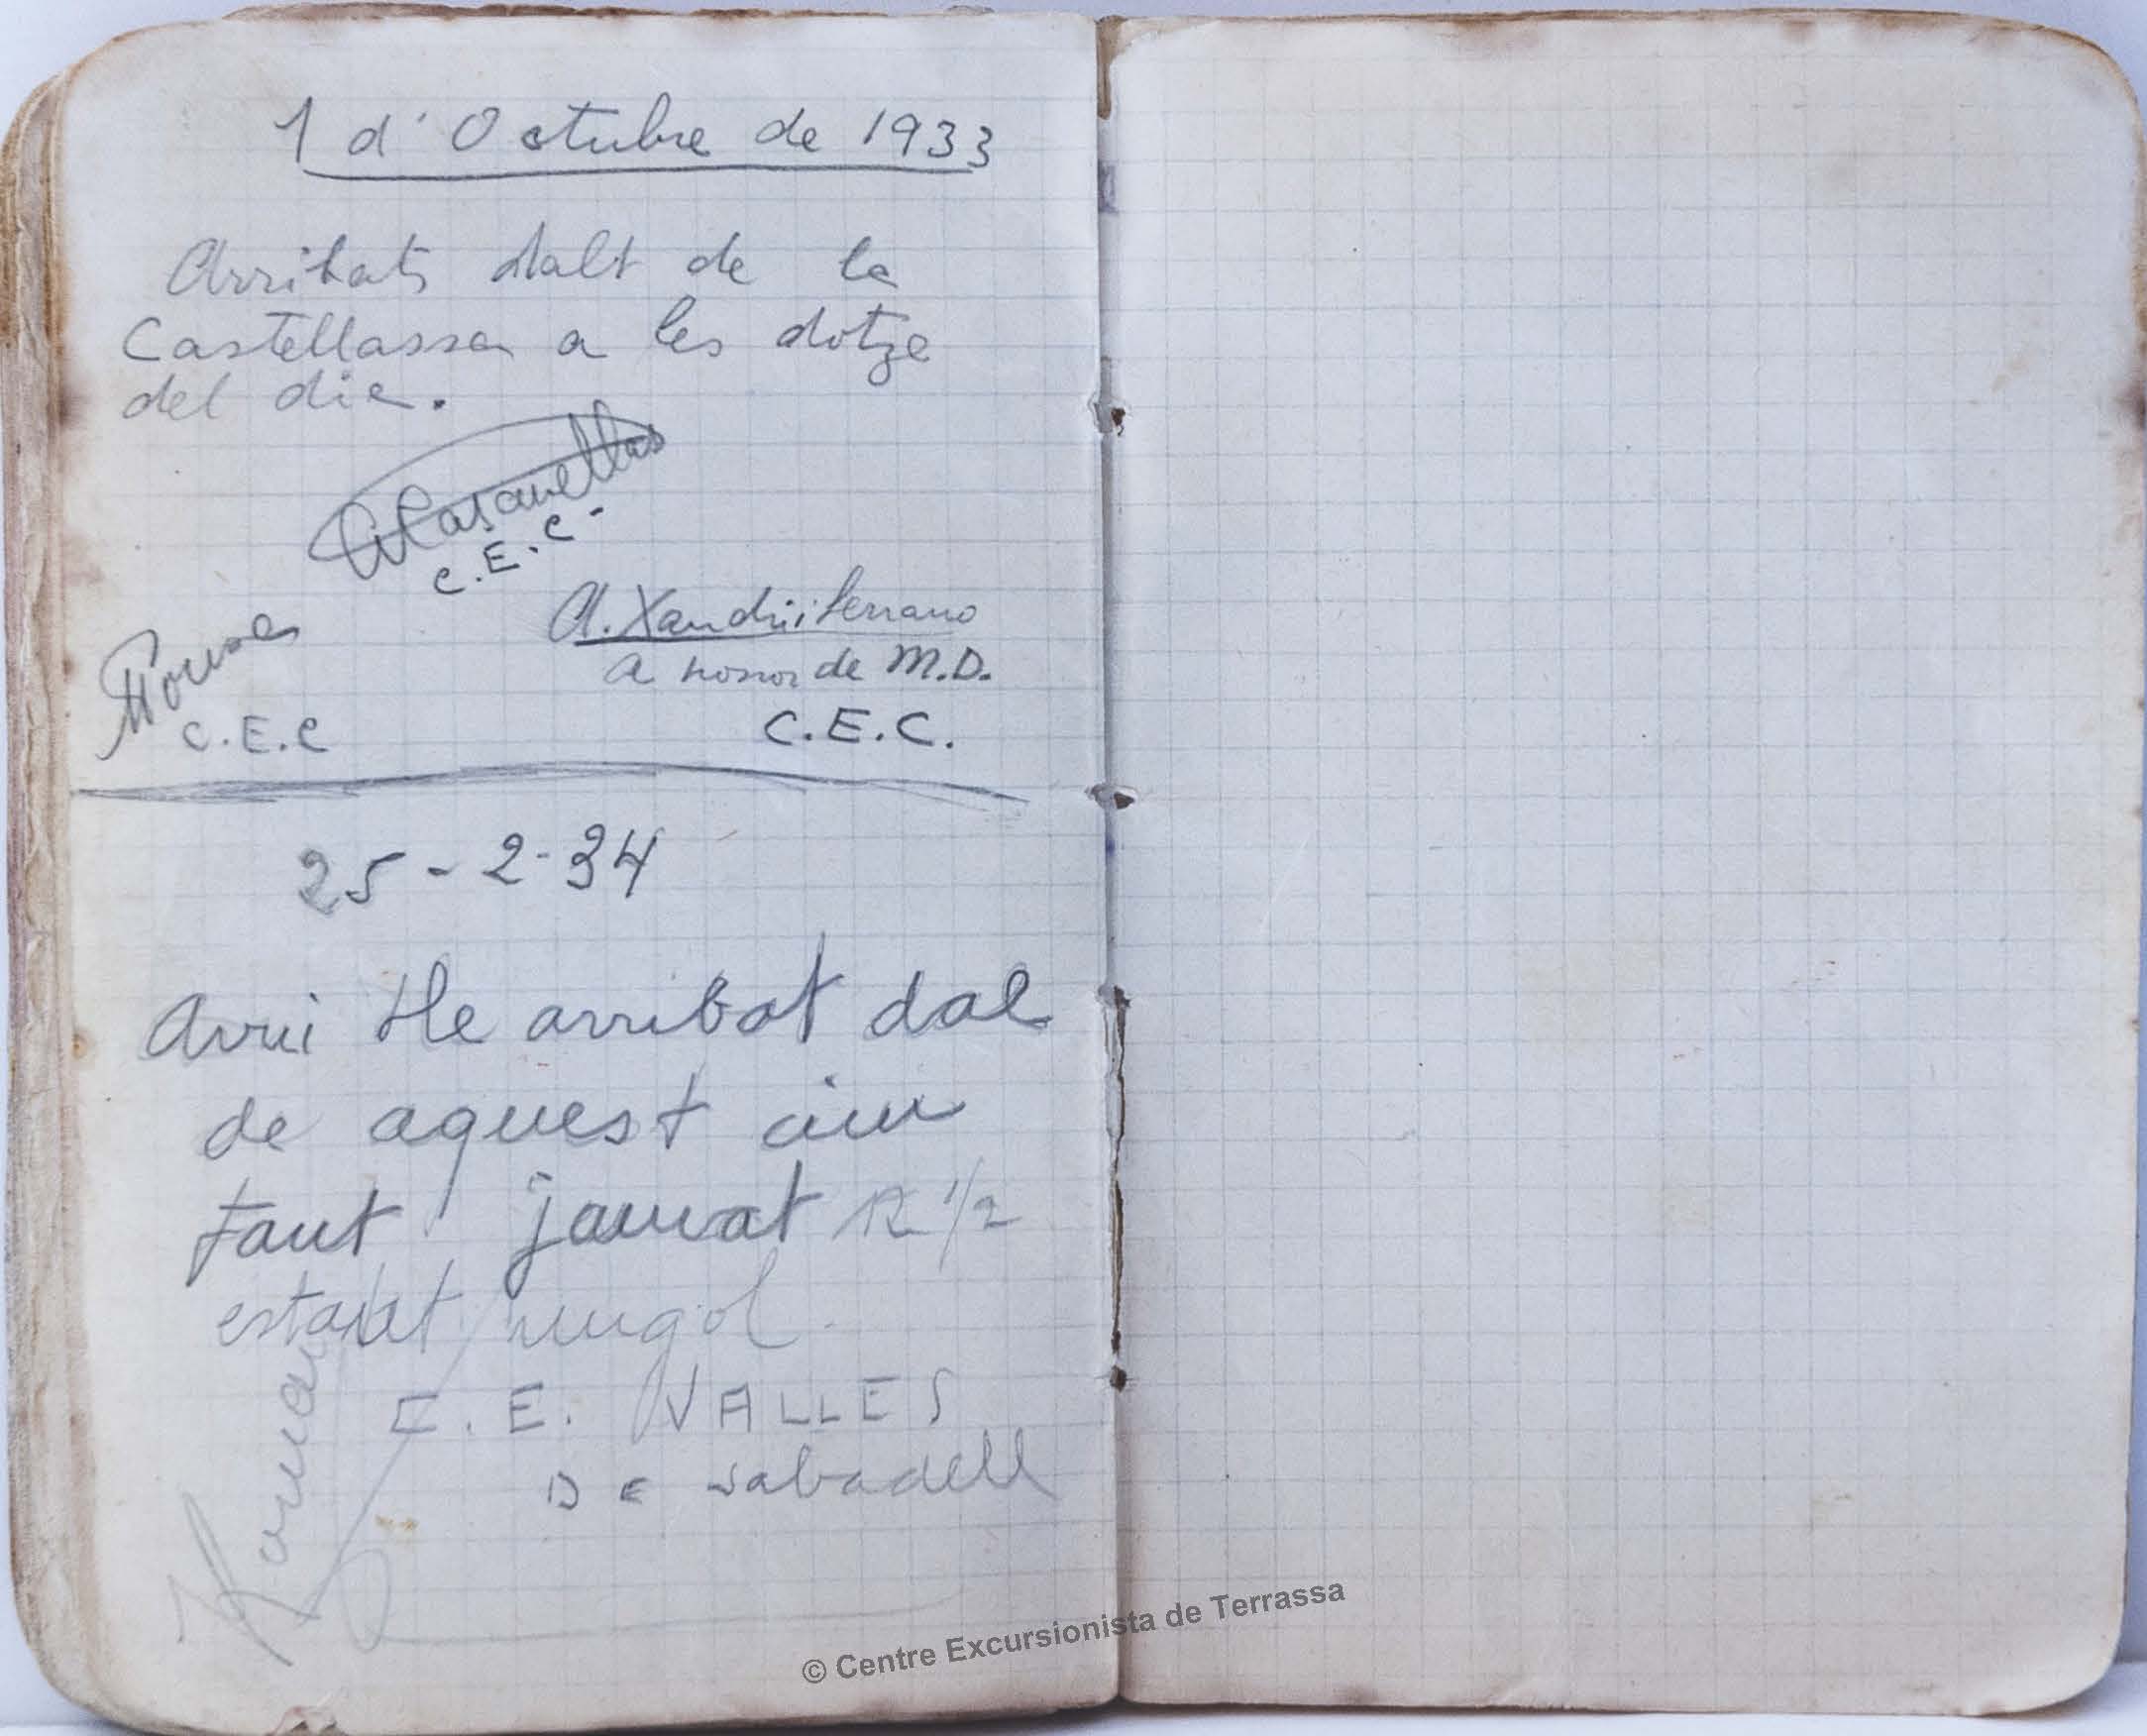 1 d'Octubre de 1933
Arribats dalt de la
Castellassa a les dotze
del dia.
Casanellas
C.E.C.
A. Xandri i Serrano
a honor de M.D.
C.E.C.
C.E.C
25-2-34
Avui He arribat dal
de aquest cim
tant 12 1/2
estant nugol
C.E. VALLES
DE sabadell
© Centre Excursionista de Terrassa